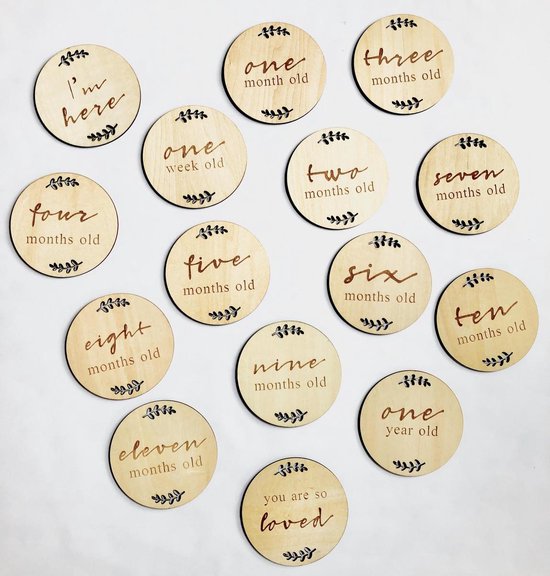 I'm
here
one
month old
three
months old
one
week old
two
months old
seven
months old
four
months old
five
months old
six
months old
eight
months old
nine
months old
ten
months old
eleven
months old
one
year old
you are so
loved